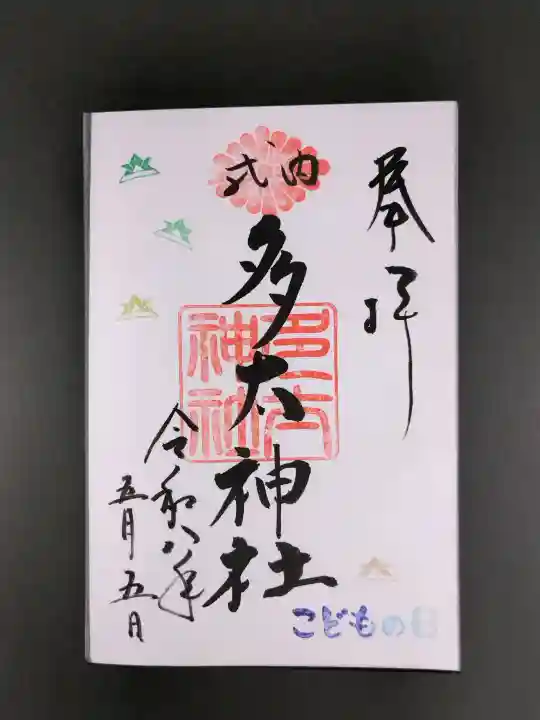 奉拝
式内
多太神社
多太神社
令和八年
五月五日
こどもの日